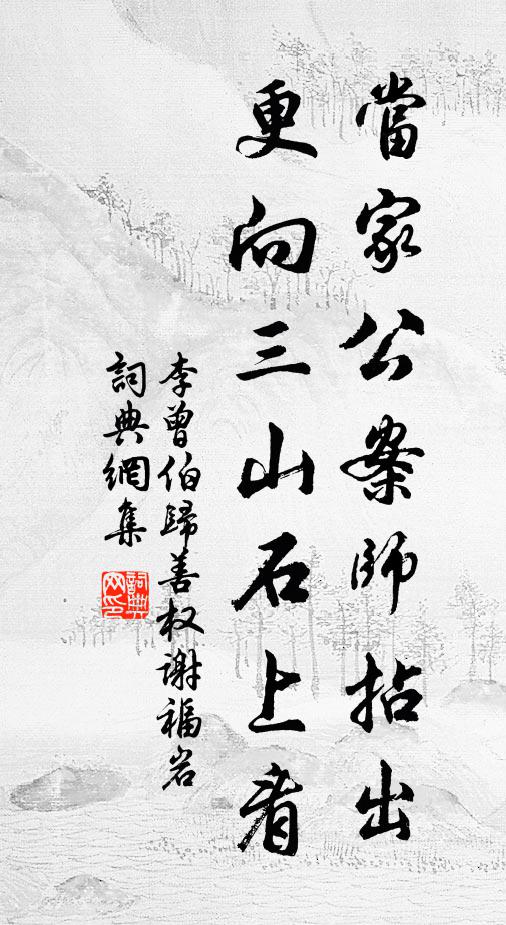 當家公案師拈出
更向三山石上看
李曾伯歸善权谢福岩
詞典網集
詞典网印